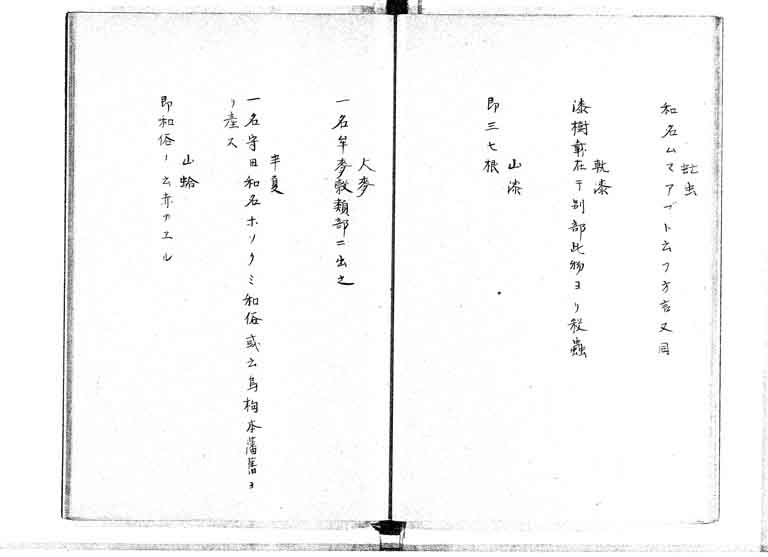 虻虫
和名ムマアブト云フ方言又同
乾漆
漆樹新在テ別部此物ヨリ殺蟲
山漆
即三七根
大麥
一名牟麥穀類部ニ出之
半夏
一名守田和名ホソクミ和俗或云烏柄本藩舊ヨ
リ產ス
山蛤
即和俗ノ云赤カエル